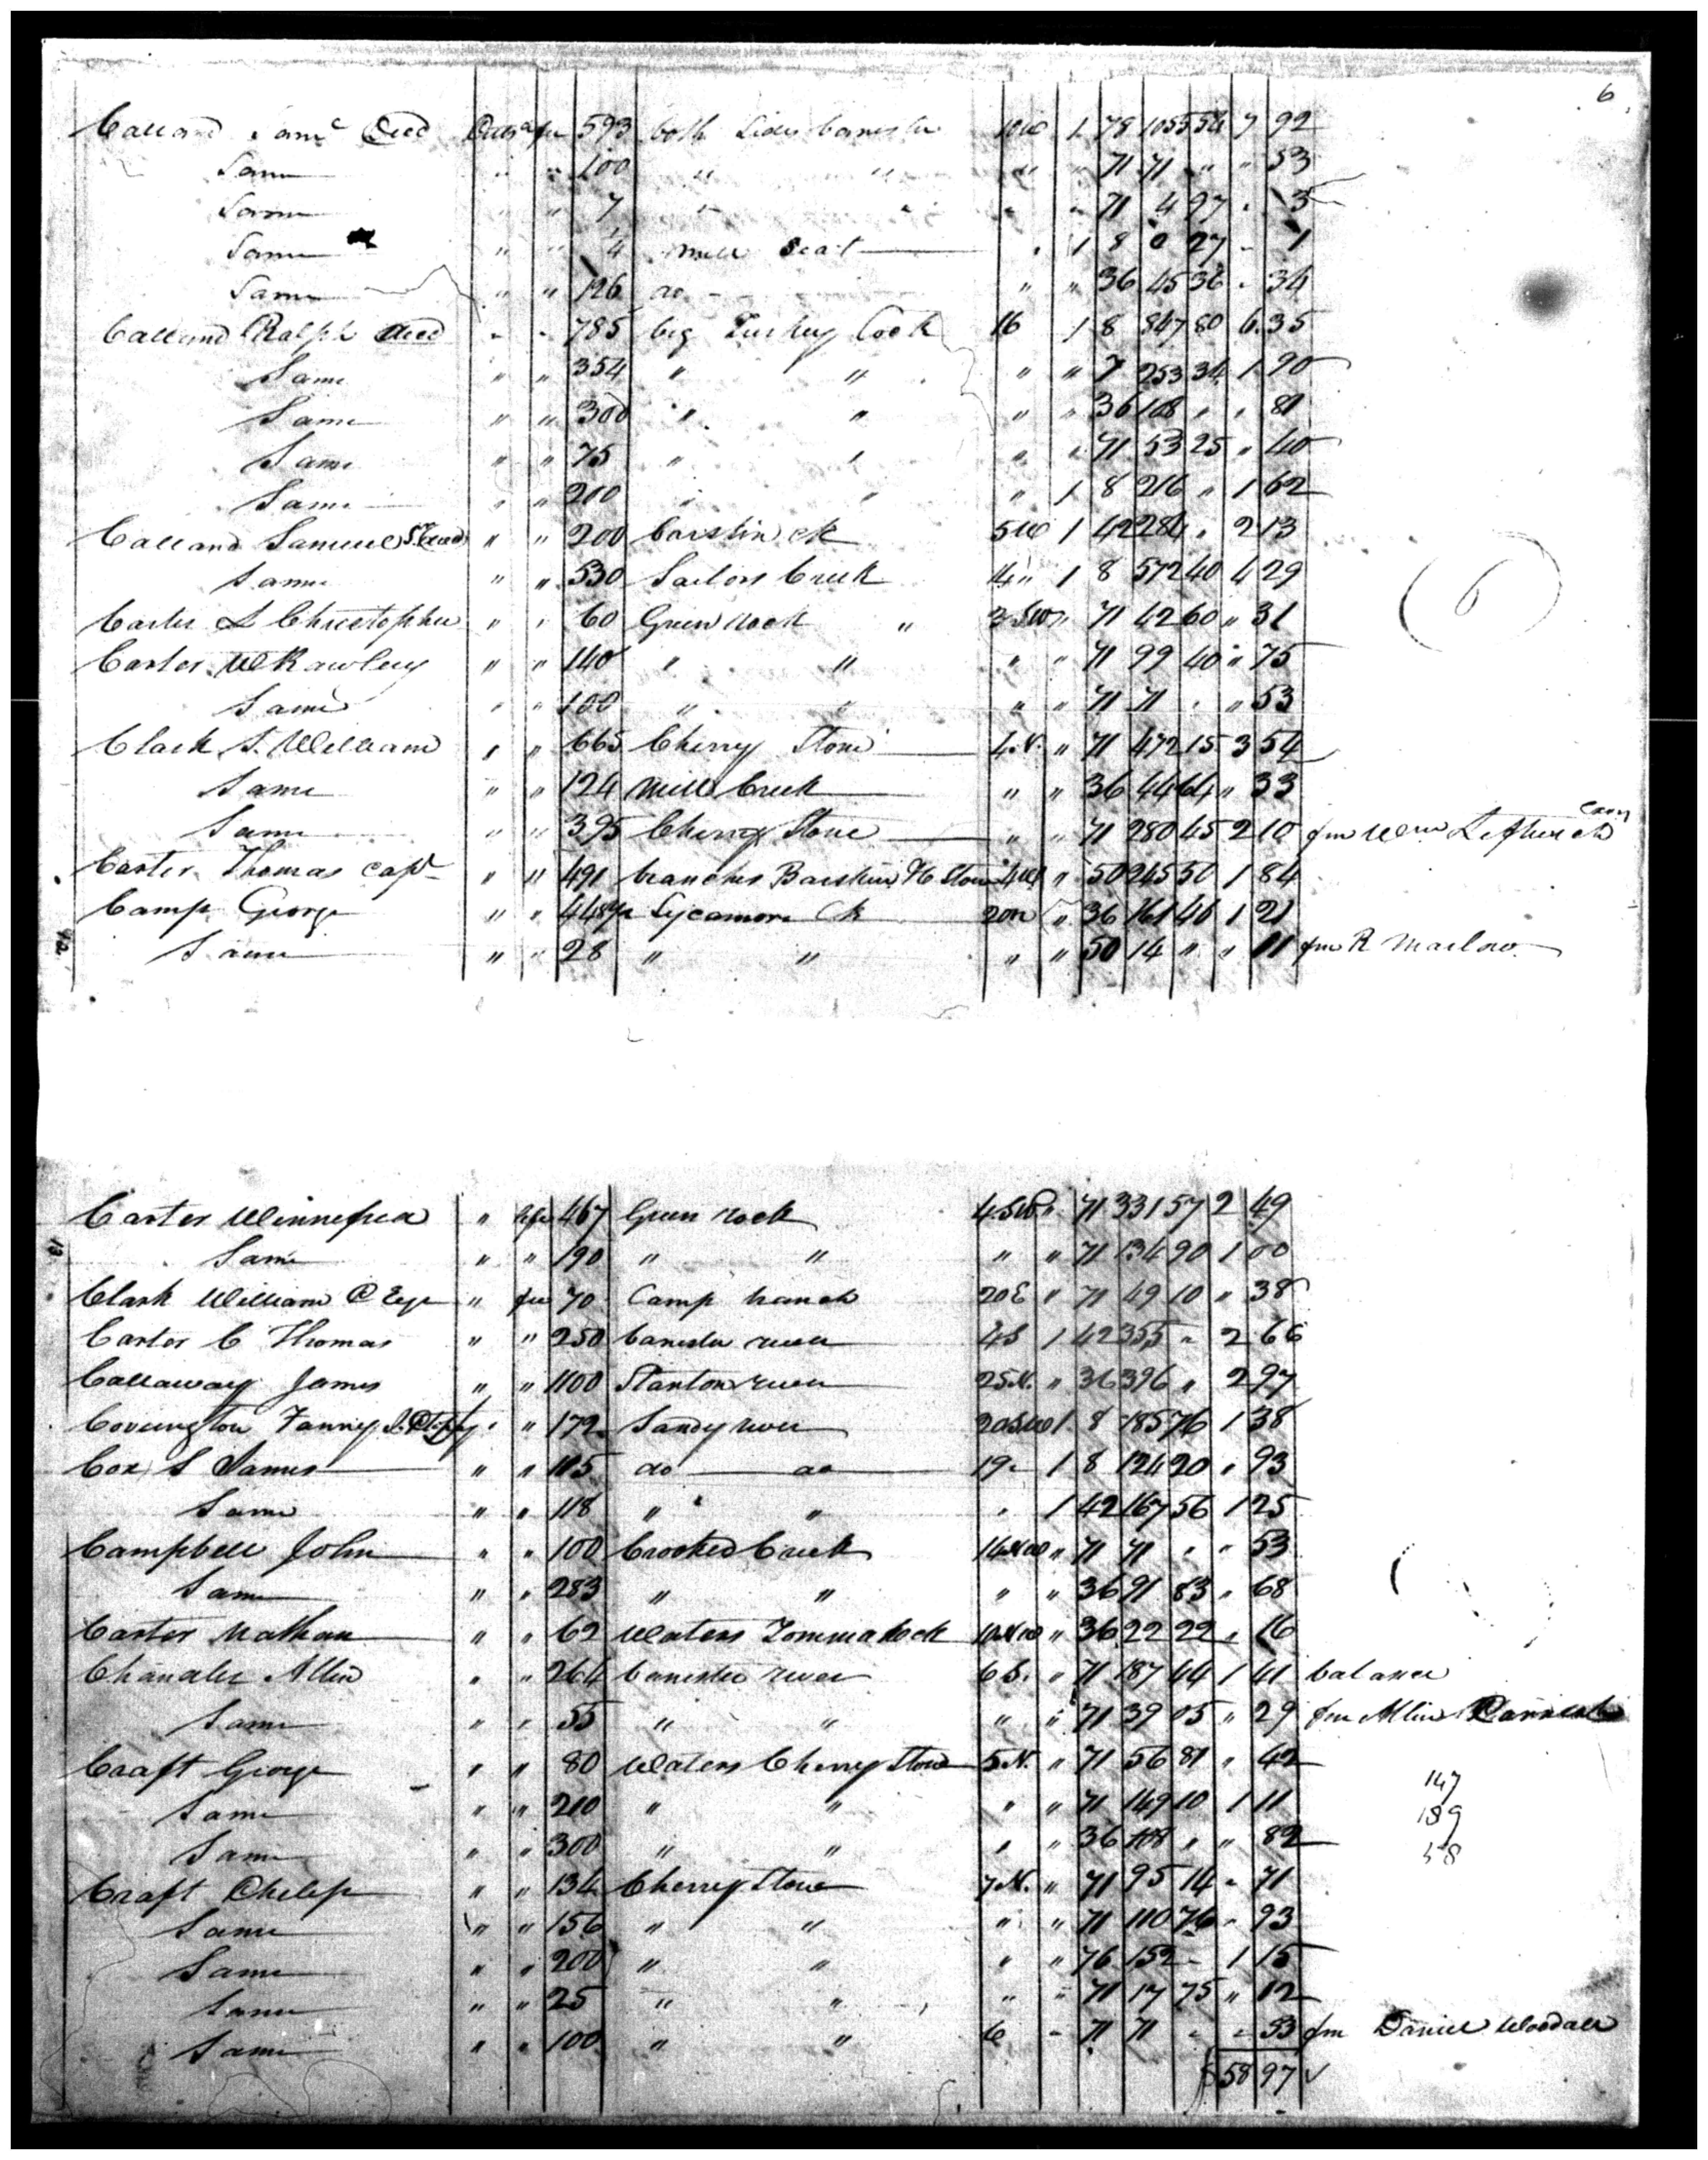 6
Calland Sam^l Decd Pitts^a fee 593 both Sides Banister 10 W 1 78 1055 54 7 92
Same " " 100 " " " " 71 71 " " 53
Same " " 7 " " " " 71 4 97 " 3
Same " " 4 Mill Seat " 1 8 0 27 " 1
Same " " 126 do " " 36 45 36 " 34
Calland Ralph Decd " " 785 big Turkey Cock 16 1 8 847 80 6 35
Same " " 354 " " " " 7 253 34 1 90
Same " " 300 " " " " 36 108 " " 81
Same " " 75 " " " " 71 53 25 " 40
Same " " 200 " " " 1 8 216 " 1 62
Calland Samuel " " 200 Barskin Ck 5 W 1 42 284 " 2 13
Same " " 530 Sailors Creek 14 " 1 8 572 40 4 29
Carter L Christopher " " 60 Green Rock " 3 SW " 71 42 60 " 31
Carter W Rawley " " 140 " " " " 71 99 40 " 75
Same " " 100 " " " " 71 71 " " 53
Clark T. William " " 665 Cherry Stone 4 N. " 71 472 15 3 54
Same " " 124 Mill Creek " " 36 44 64 " 33
Same " " 395 Cherry Stone " " 71 280 45 2 10 fm Wm Leftwich
Carter Thomas Capt " " 491 branches Barskin & C Stone 4 W " 50 245 50 1 84
Camp George " " 448½ Sycamore Ck 20 N " 36 161 46 1 21
Same " " 28 " " " " 50 14 " " 11 fm R Marlow
6
Carter Winnefred " 467 Green Rock 4 SW " 71 331 57 2 49
Same " " 190 " " " " 71 134 90 1 00
Clark William " fee 70 Camp branch 20 E " 71 49 10 " 38
Carter C Thomas " " 250 Banister river 4 S 1 42 355 " 2 66
Callaway James " " 1100 Stanton river 25 N. " 36 396 " 2 97
Covington Fanny " " 172 Sandy river 20 SW 1 8 185 76 1 38
Cox S James " " 115 do do 19 " 1 8 124 20 " 93
Same " " 118 " " " 1 42 167 56 1 25
Campbell John " " 100 Crooked Creek 16 NW " 71 71 " " 53
Same " " 283 " " " " 36 91 83 " 68
Carter Nathan " " 62 Waters Tommahock 10 NW " 36 22 22 " 16
Chandler Allin " " 264 Banister river 6 S. " 71 187 44 1 41 balance
Same " " 55 " " " " 71 39 05 " 29 fm Allin
Craft George " " 80 Waters Cherry Stone 5 N. " 71 56 81 " 42
Same " " 210 " " " " 71 149 10 1 11
147
189
58
Same " " 300 " " " " 36 108 " " 82
Craft Philip " " 134 Cherry Stone 7 N. " 71 95 14 " 71
Same " " 156 " " " " 71 110 76 " 93
Same " " 200 " " " " 76 152 " 1 15
Same " " 25 " " " " 71 17 75 " 12
Same " " 100 " " 6 " 71 71 " " 53 fm Daniel Woodall
$ 58 97